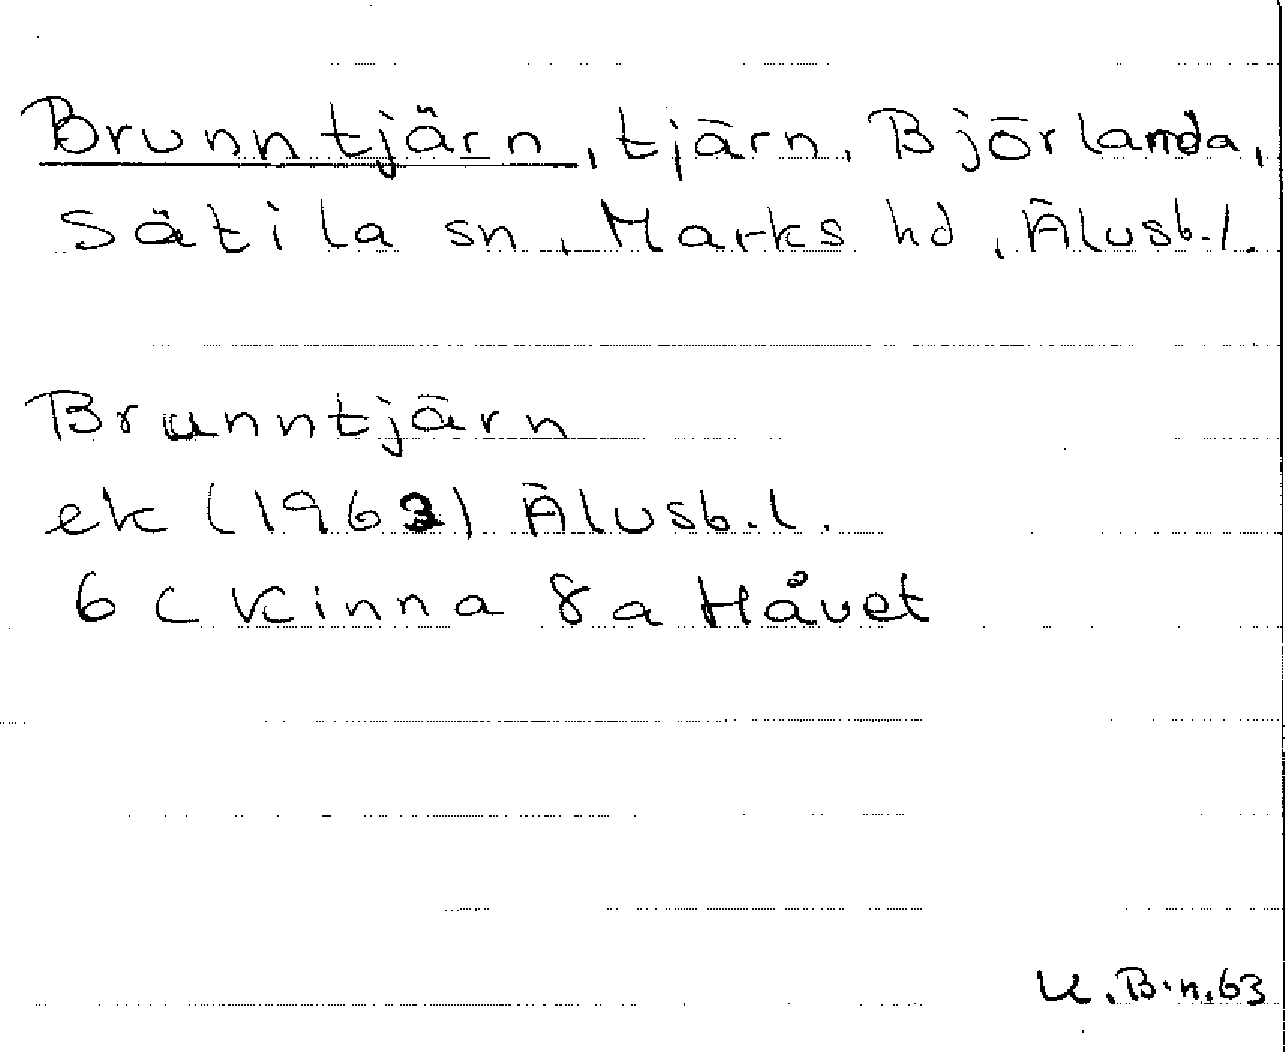 Brunntjärn, tjärn, Björlanda,
Sätila sn, Marks hd, Älvsb.l.
Brunntjärn
ek (1963) Älvsb.l.
6 C Kinna 8a Håvet
U.B.n.63